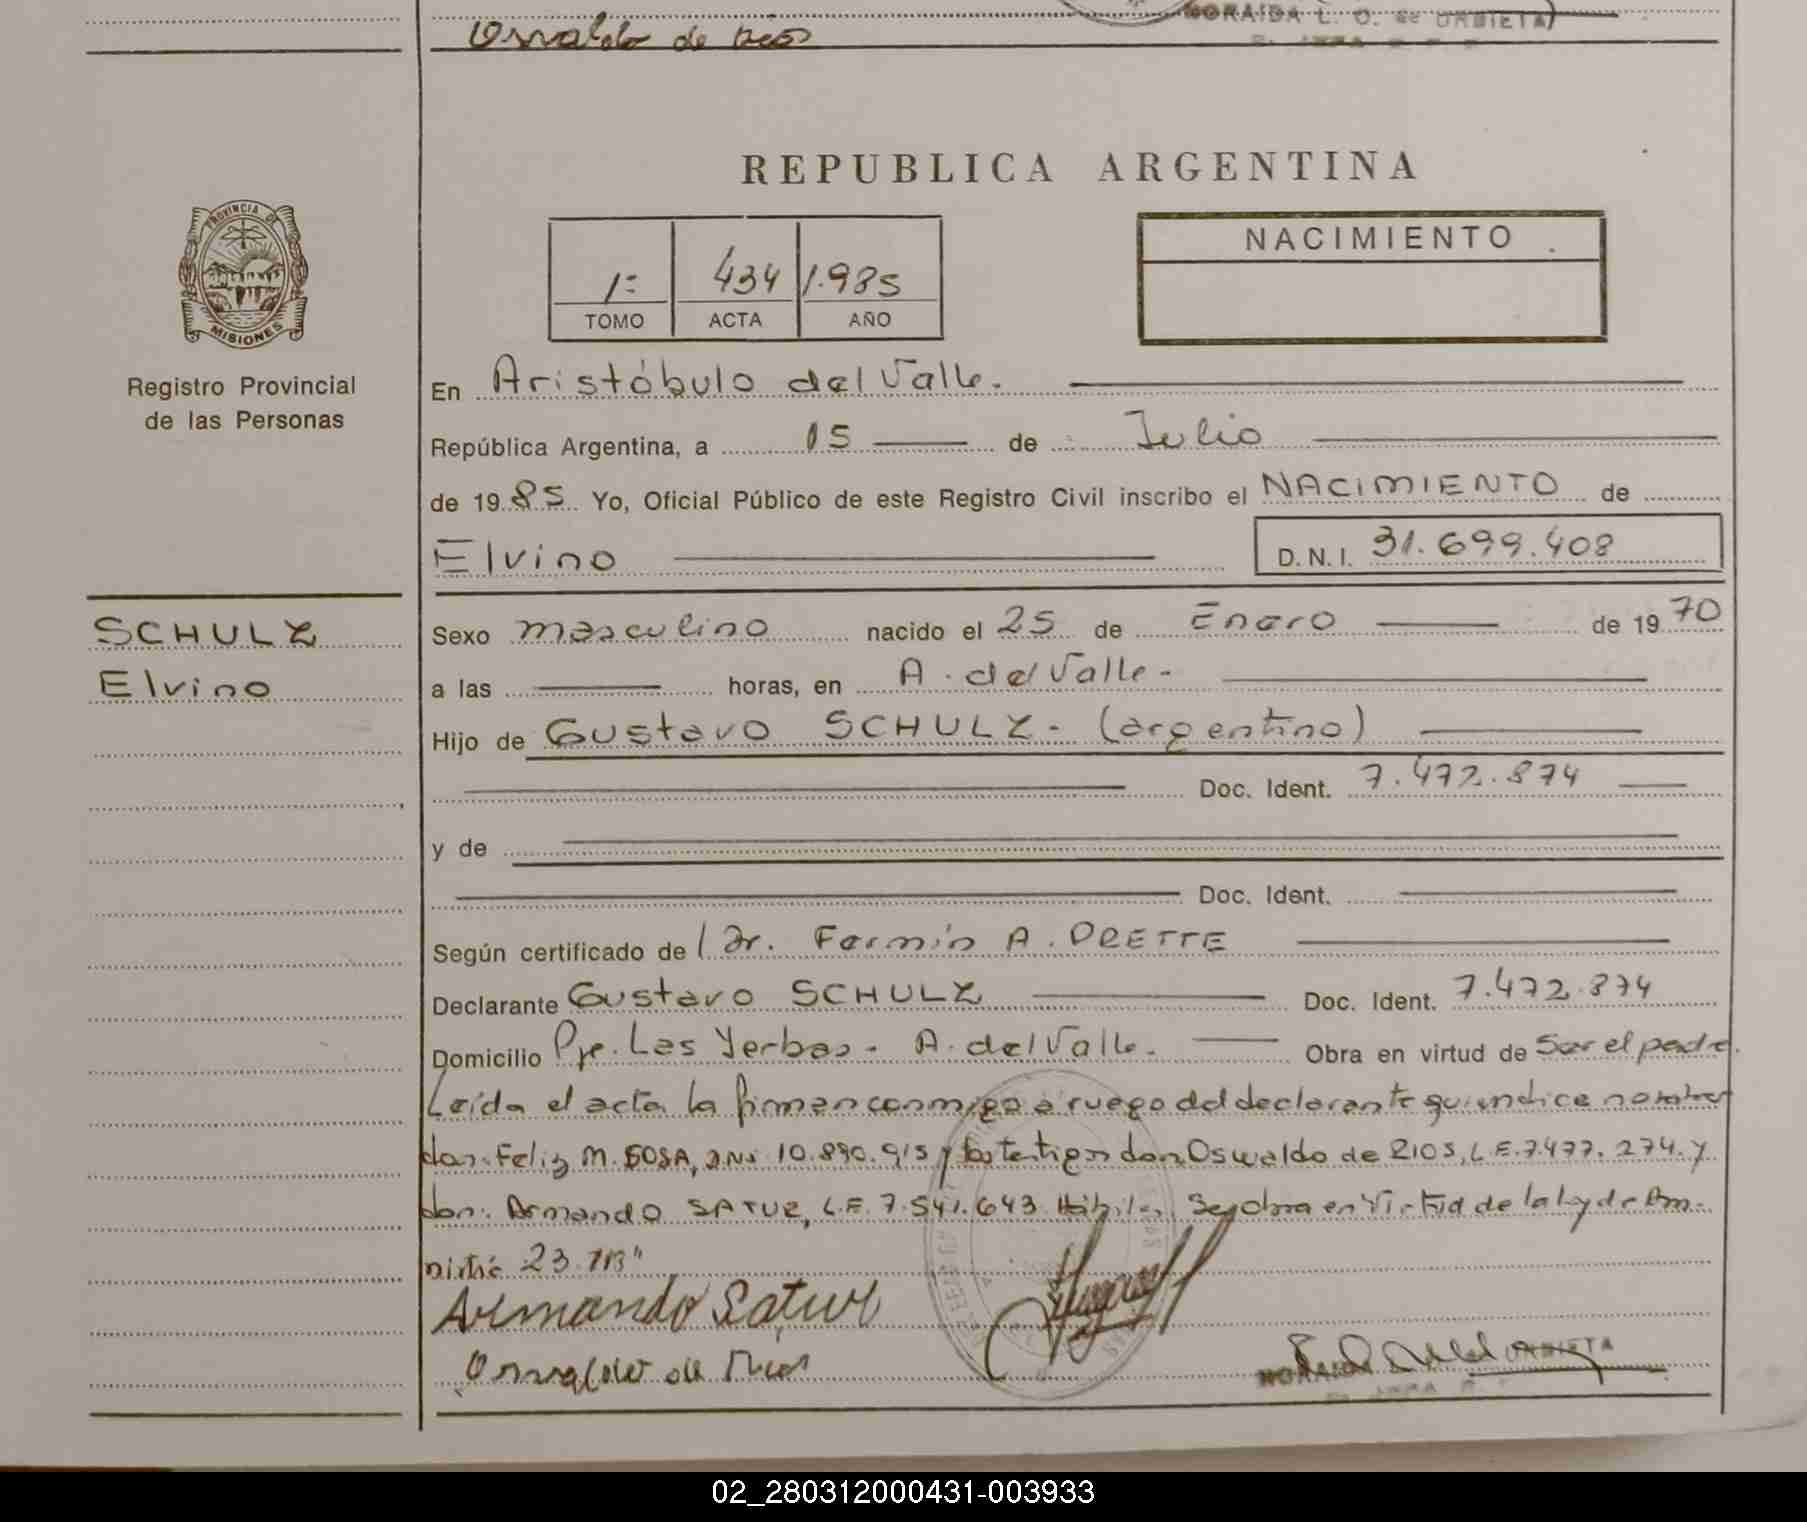 Osvaldo de Rios
NORAIDA L. O. de URBIETA
REPUBLICA ARGENTINA
PROVINCIA DE
MISIONES
Registro Provincial
de las Personas
1º 434 1.985
TOMO ACTA AÑO
NACIMIENTO
En Aristóbulo del Valle.
República Argentina, a 15 de Julio
de 1985 Yo, Oficial Público de este Registro Civil inscribo el NACIMIENTO de
Elvino D.N.I. 31.699.408
SCHULZ
Elvino
Sexo masculino nacido el 25 de Enero de 1970
a las horas, en A. del Valle.
Hijo de Gustavo SCHULZ. (argentino)
Doc. Ident. 7.472.874
y de
Doc. Ident.
Según certificado de Dr. Fermín A. ORETTE
Declarante Gustavo SCHULZ Doc. Ident. 7.472.874
Domicilio Pje. Las Yerbas. A. del Valle. Obra en virtud de Ser el padre.
Leída el acta la firman conmigo a ruego del declarante quien dice no saber
don. Feliz M. SOSA, DNI 10.890.915 y los testigos don Oswaldo de RIOS, L.E. 7.477.274. y
don. Armando SATUR, L.E. 7.541.643 Hábiles. Se obra en Virtud de la Ley de Am-
nistía 23.113"
Armando Satur
Osvaldo de Rios
NORAIDA URBIETA
02_280312000431-003933